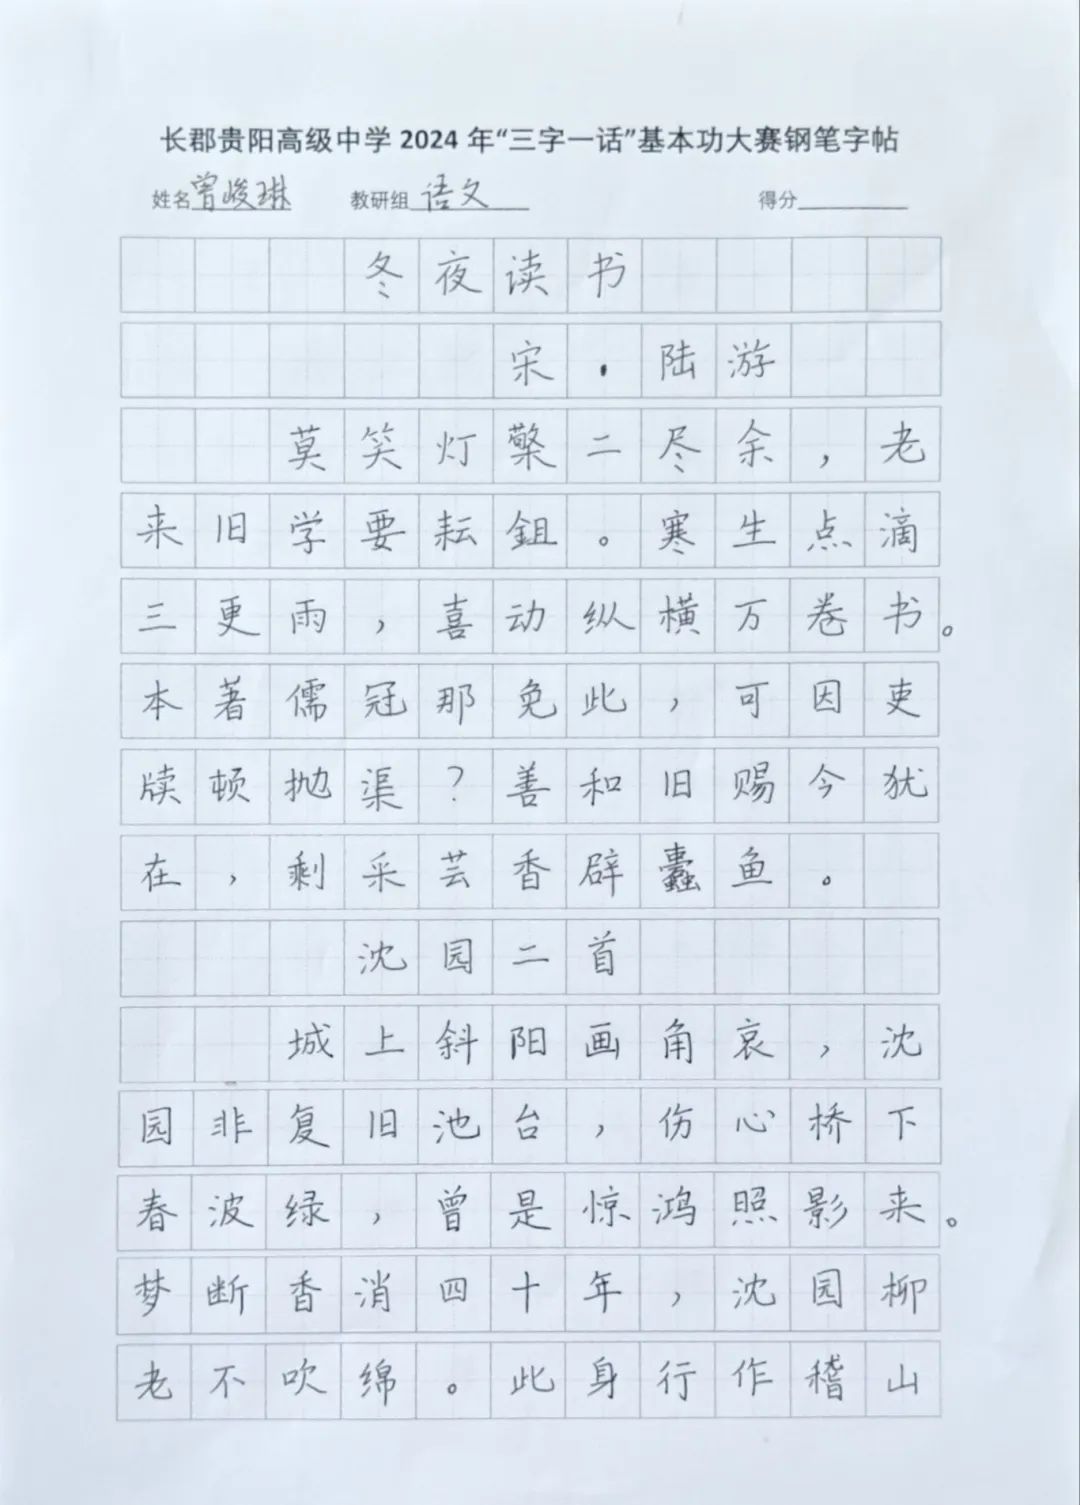 长郡贵阳高级中学2024年“三字一话”基本功大赛钢笔字帖
姓名曾峻琳 教研组语文 得分
冬夜读书
宋·陆游
莫笑灯檠二尽余，老
来旧学要耘鉏。寒生点滴
三更雨，喜动纵横万卷书。
本著儒冠那免此，可因吏
牍顿抛渠？善和旧赐今犹
在，剩采芸香辟蠹鱼。
沈园二首
城上斜阳画角哀，沈
园非复旧池台，伤心桥下
春波绿，曾是惊鸿照影来。
梦断香消四十年，沈园柳
老不吹绵。此身行作稽山